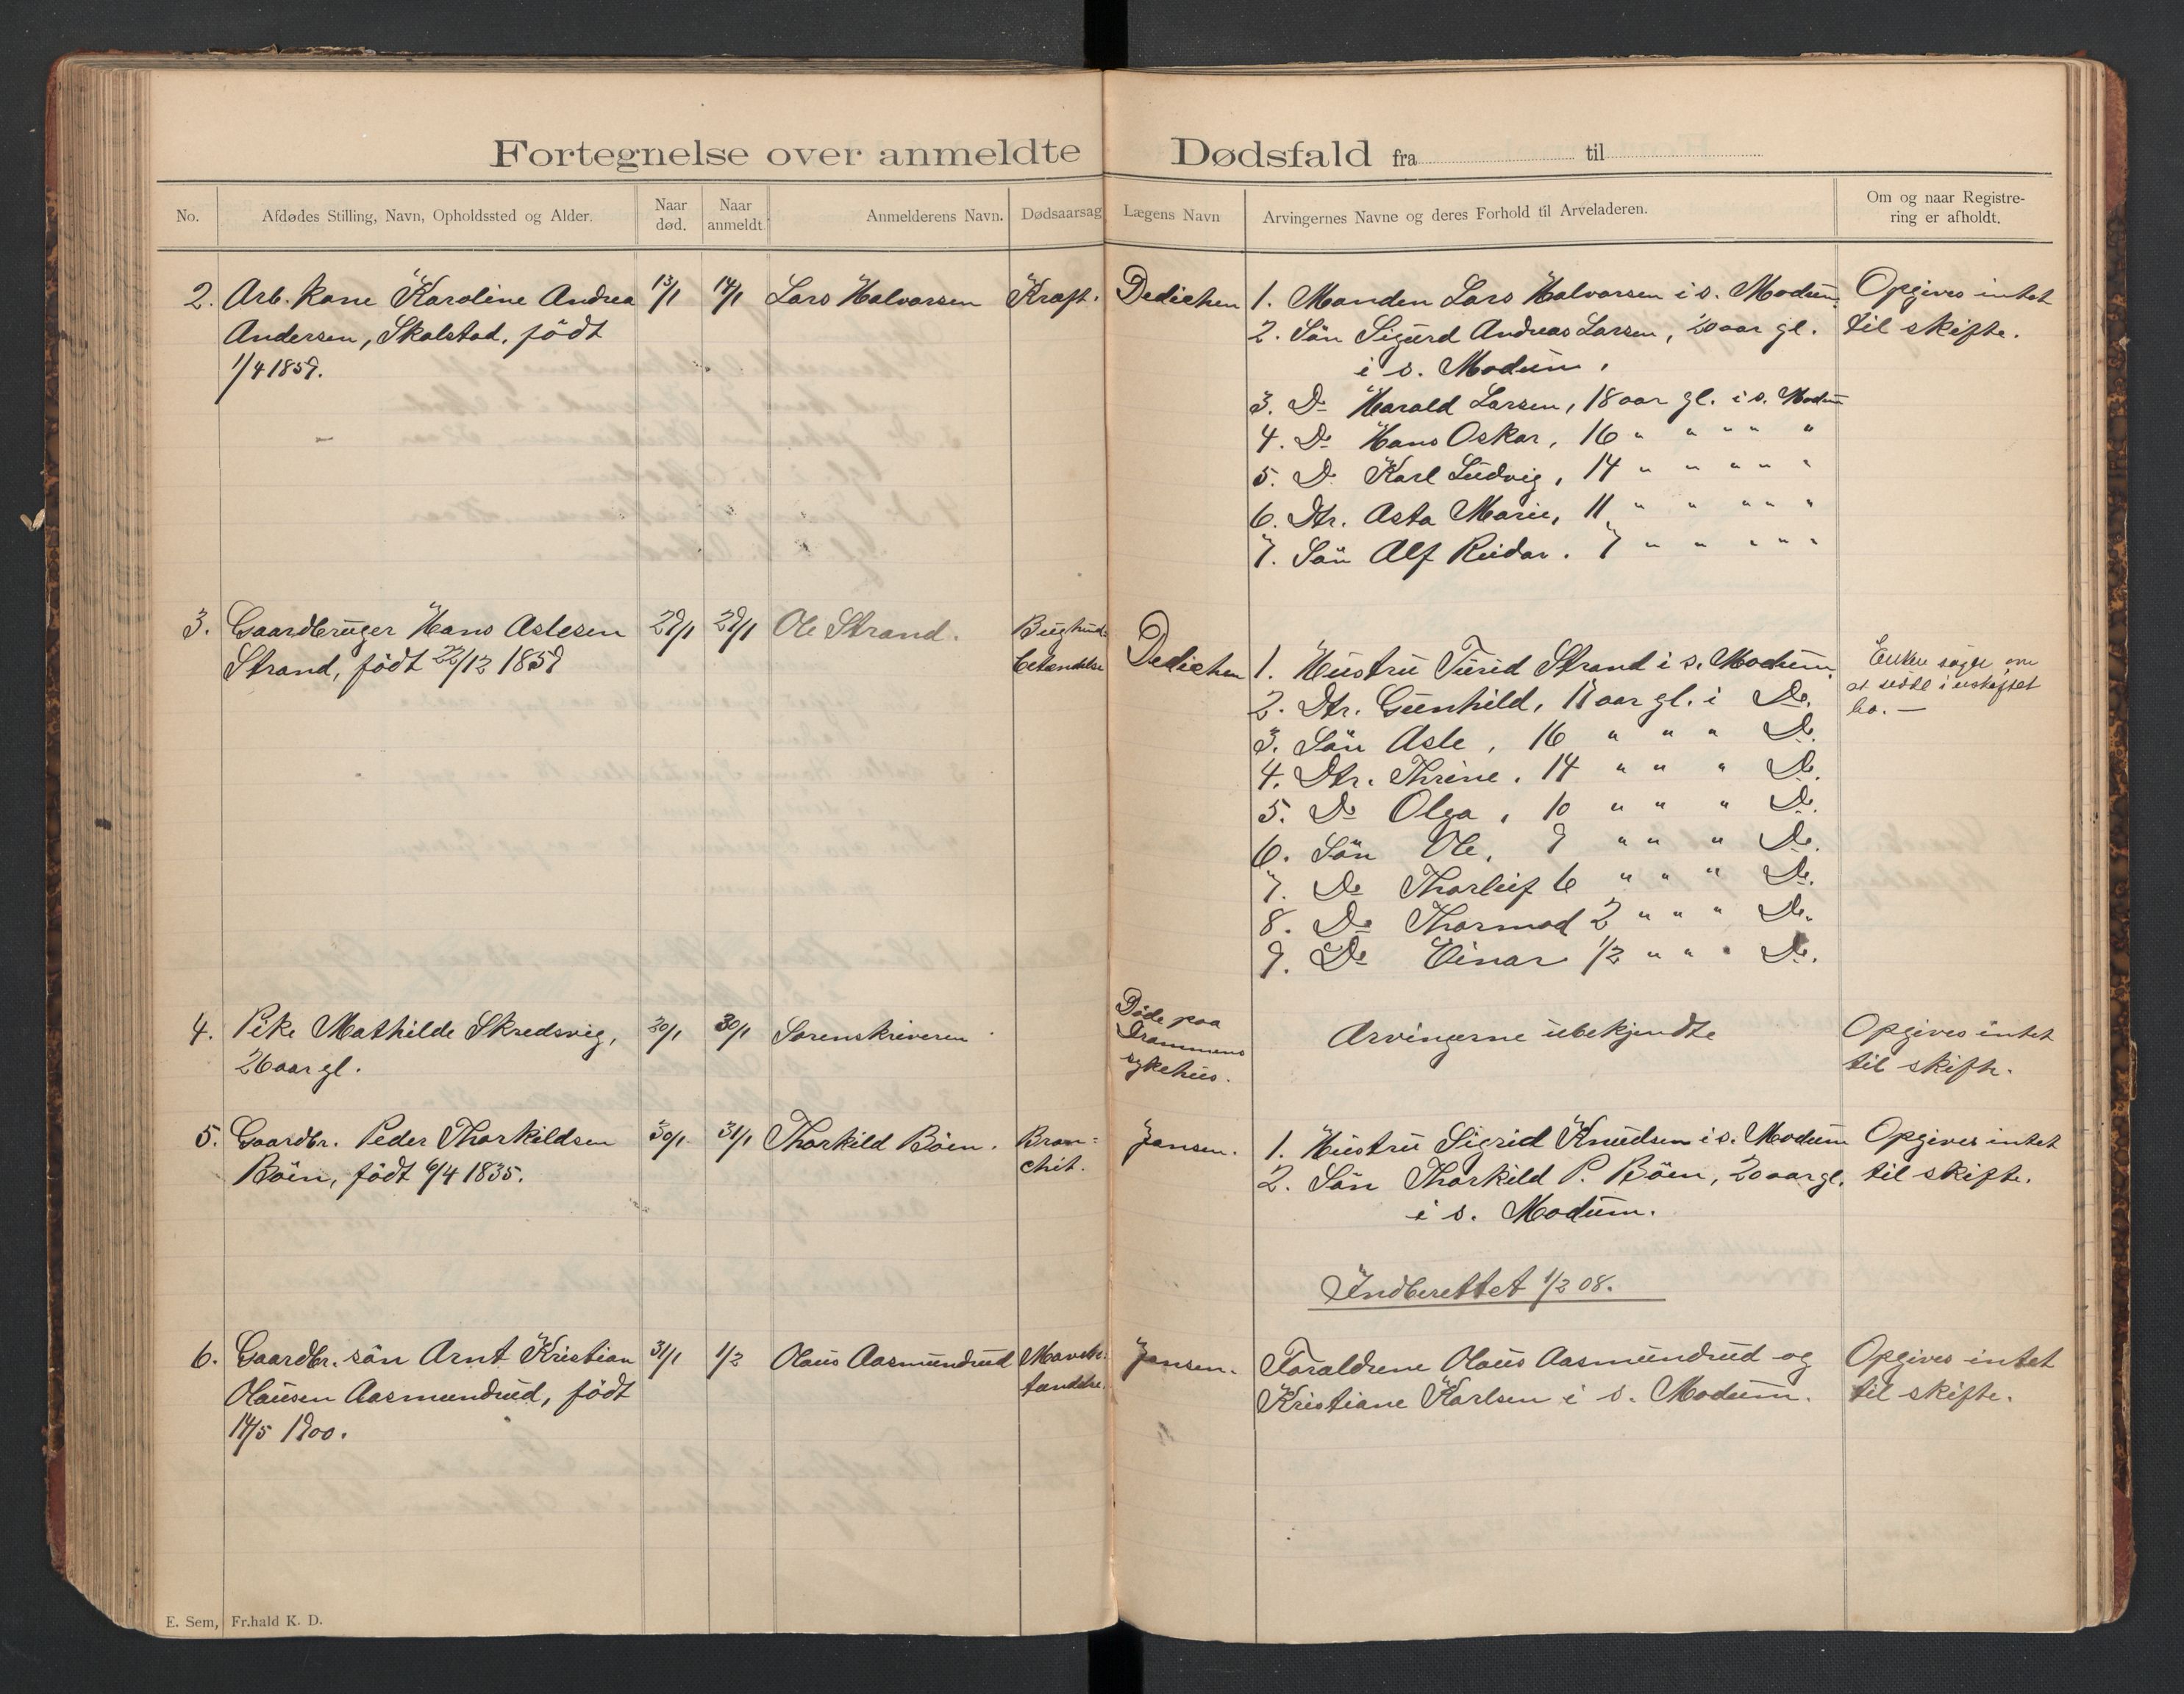 Fortegnelse over anmeldte Dødsfald fra til
No. Afdødes Stilling, Navn, Opholdssted og Alder. Naar død. Naar anmeldt. Anmelderens Navn. Dødsaarsag Lægens Navn Arvingernes Navne og deres Forhold til Arveladeren. Om og naar Registrering er afholdt.
2. Arb. kone Karoline Andrea 13/1 14/1 Lars Halvorsen Kræft. Dedichen 1. Manden Lars Halvorsen i s. Modum. Opgives intet
Andersen, Skalstad, födt 2. Sön Sigurd Andreas Larsen, 20 aar gl. til skifte.
1/4 1859. i s. Modum.
3. Do Harald Larsen, 18 aar gl. i s. Modum
4. Do Hans Oskar, 16 " " " " "
5. Do Karl Ludvig, 14 " " " " "
6. Dtr. Asta Marie, 11 " " " " "
7. Sön Alf Reidar. 7 " " " " "
3. Gaardbruger Hans Aslesen 29/1 29/1 Ole Strand. Bughind-
Strand, födt 22/12 1859 betændelse Dedichen 1. Hustru Turid Strand i s. Modum. Enken söger om
2. Dtr. Gunhild, 17 aar gl. i Do. at sidde i uskiftet
3. Sön Asle, 16 " " " Do. bo. —
4. Dtr. Thrine. 14 " " " Do.
5. Do Olga, 10 " " " Do.
6. Sön Ole, 9 " " " Do.
7. Do Thorleif 6 " " " Do.
8. Do Thormod 2 " " " Do.
9. Do Einar 1/2 " " " Do.
4. Pike Mathilde Skredsvig, 30/1 30/1 Sorenskriveren Döde paa Arvingerne ubekjendte Opgives intet
26 aar gl. Drammens til skifte.
sykehus.
5. Gaardbr. Peder Thorkildsen 30/1 31/1 Thorkild Böen. Bron= Jansen. 1. Hustru Sigrid Knudsen i s. Modum Opgives intet
Böen, födt 6/4 1835. chit. 2. Sön Thorkild P. Böen, 20 aar gl. til skifte.
i s. Modum.
Indberettet 1/2 08.
6. Gaardbr. sön Arnt Kristian 31/1 1/2 Olaus Aasmundrud Jansen. Foræeldrene Olaus Aasmundrud og Opgives intet
Olausen Aasmundrud, födt Kristiane Karlsen i s. Modum. til skifte.
14/5 1900.
E. Sem, Fr.hald K. D.